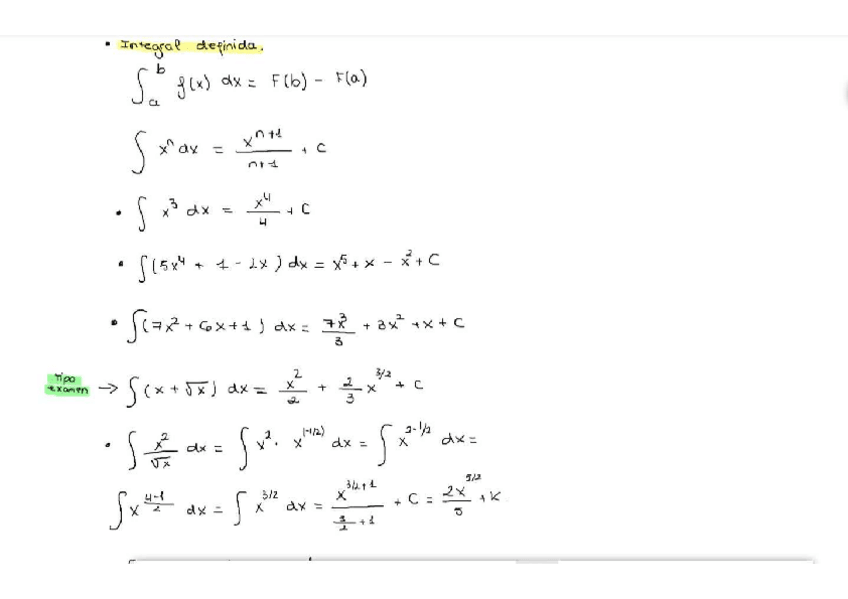 • Integral definida.
∫_a^b f(x) dx = F(b) - F(a)
∫ x^n dx = x^(n+1)/(n+1) + C
• ∫ x^3 dx = x^4/4 + C
• ∫(5x^4 + 1 - 2x) dx = x^5 + x - x^2 + C
• ∫(7x^2 + 6x + 1) dx = 7x^3/3 + 3x^2 + x + C
Tipo examen → ∫(x + √x) dx = x^2/2 + 2/3 x^(3/2) + C
• ∫ x^2/√x dx = ∫ x^2 · x^(-1/2) dx = ∫ x^(2-1/2) dx =
∫ x^((4-1)/2) dx = ∫ x^(3/2) dx = x^(3/2+1)/(3/2+1) + C = 2x^(5/2)/5 + K